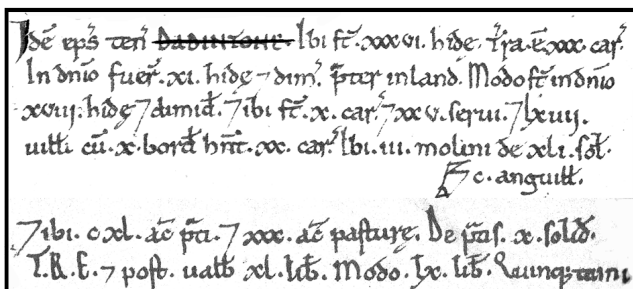 Idē eps̄ ten̄ DADINTONE. Ibi st̄. xxxvi. hidę. t̄ra. ē xxx. car̄.
In dn̄io fuer̄. xi. hidę ⁊ dim̄. p̄ter inland. Modo st̄ in dn̄io
xviij. hidę ⁊ dimid̄. ⁊ ibi st̄. x. car̄. ⁊ xxv. serui. ⁊ lxvij.
uill̄i cū. x. bord̄ hn̄t. xx. car̄. Ibi. iii. molini de xli. sol̄.
⁊ c. anguill̄.
⁊ ibi. c xl. ac̄ p̄ti. ⁊ xxx. ac̄ pasturę. De p̄tis. x. solid̄.
T. R. E. ⁊ post. ualb̄ xl. lib̄. Modo. lx. lib̄. Quinq;